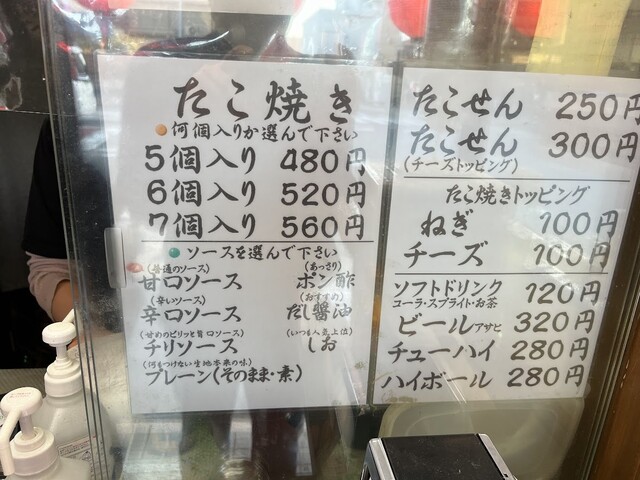 たこ焼き
何個入りか選んで下さい
5個入り 480円
6個入り 520円
7個入り 560円
ソースを選んで下さい
(普通のソース) (あっさり)
甘口ソース ポン酢
(辛いソース) (おすすめ)
辛口ソース だし醤油
(甘めのピリッと旨口ソース) (いつも人気上位)
チリソース しお
(何もつけない生地本来の味)
プレーン(そのまま・素)
たこせん 250円
たこせん 300円
(チーズトッピング)
たこ焼きトッピング
ねぎ 100円
チーズ 100円
ソフトドリンク 120円
コーラ・スプライト・お茶
ビール アサヒ 320円
チューハイ 280円
ハイボール 280円